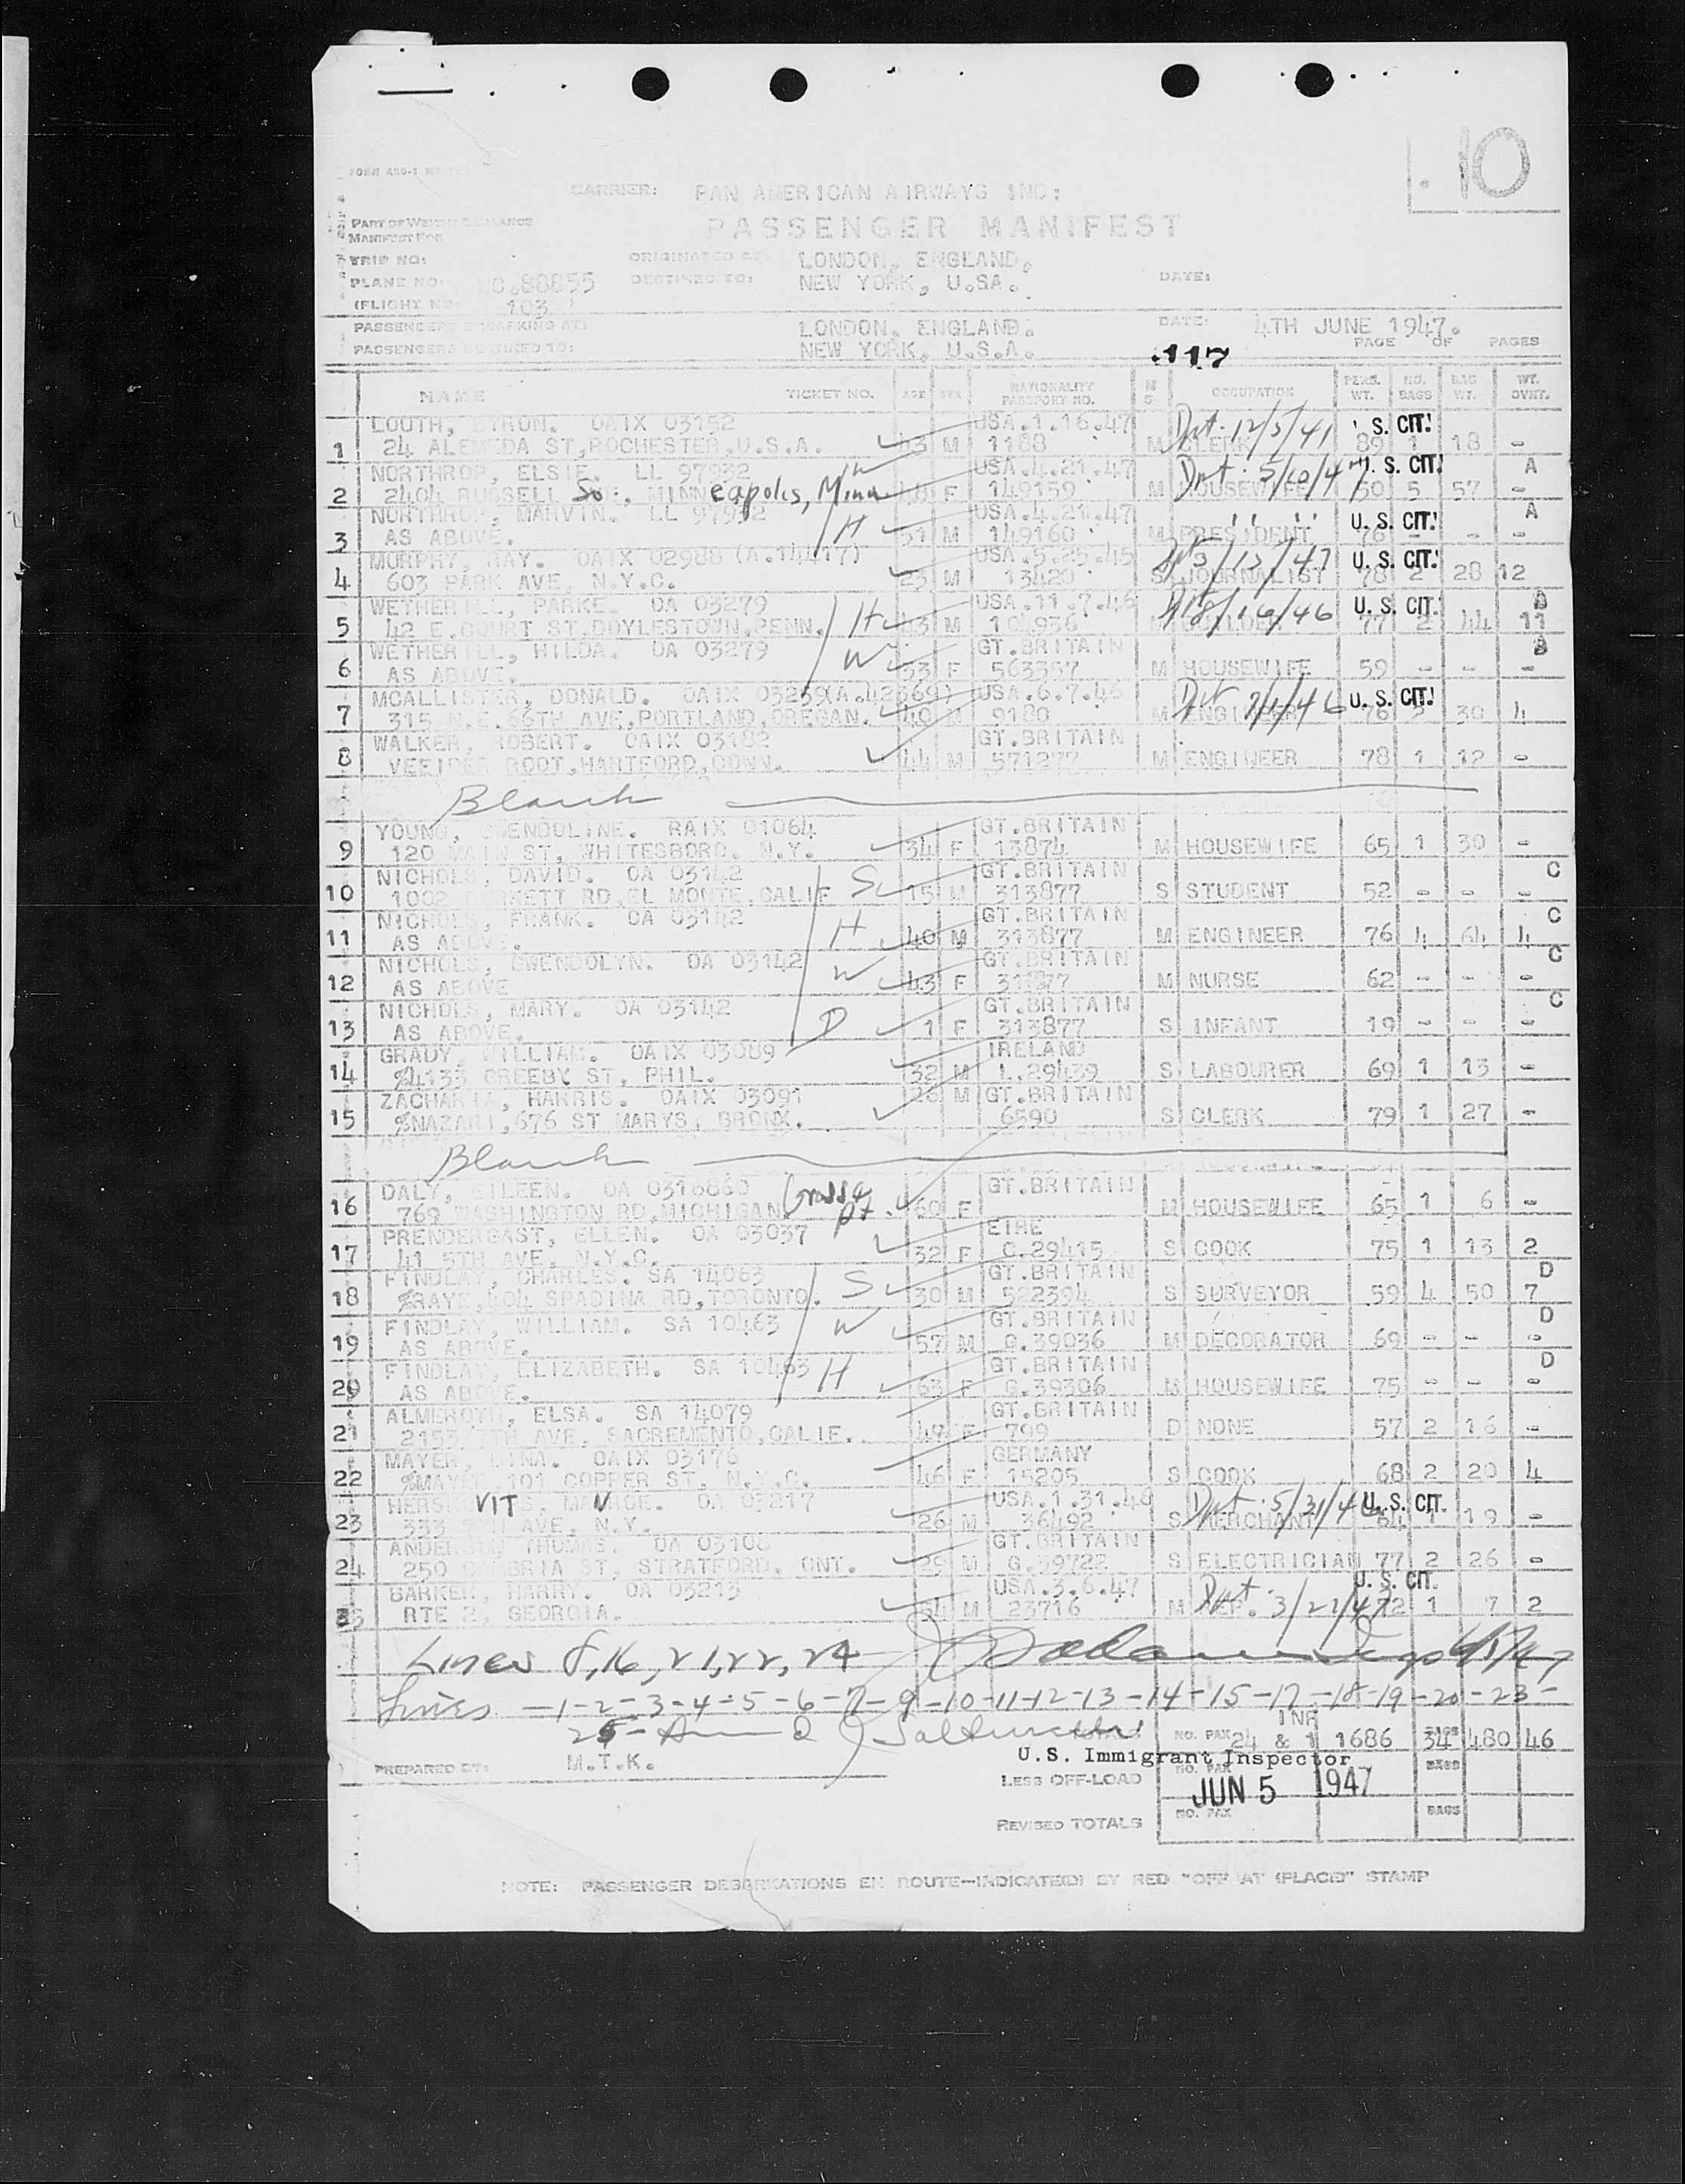 10
FORM
CARRIER: PAN AMERICAN AIRWAYS INC:
PART OF WEIGHT & BALANCE
MANIFEST FOR
PASSENGER MANIFEST
TRIP NO: ORIGINATED AT: LONDON, ENGLAND,
PLANE NO: NC.88855 DESTINED TO: NEW YORK, U.SA. DATE:
(FLIGHT NO. 103
PASSENGERS EMBARKING AT: LONDON. ENGLAND. DATE: 4TH JUNE 1947.
PASSENGERS DESTINED TO: NEW YORK, U.S.A. PAGE OF PAGES
117
NAME TICKET NO. AGE SEX NATIONALITY PASSPORT NO. M S OCCUPATION PERS. WT. NO. BAGS BAG WT. WT. OVHT.
LOUTH, BYRON. OAIX 03152 USA.1.16.47 Dpt. 12/5/41 S. CIT.
1 24 ALEMEDA ST,ROCHESTER,U.S.A. M 1188 M CLERK 89 1 18 -
NORTHROP, ELSIE. LL 97932 W USA.4.21.47 Dpt. 5/10/47 U. S. CIT. A
2 2404 RUSSELL So, MINNeapolis, Minn F 149159 M HOUSEWIFE 50 5 57 -
NORTHROP, MARVIN. LL 97932 H USA.4.21.47 " " U. S. CIT. A
3 AS ABOVE. 51 M 149160 M PRESIDENT 76 - - -
MURPHY, RAY. OAIX 02988 (A.14417) USA.5.25.45 /47 U. S. CIT.
4 603 PARK AVE, N.Y.C. 23 M 13420 S JOURNALIST 78 2 28 12
WETHERILL, PARKE. OA 03279 H USA.11.7.46 /16/46 U. S. CIT. B
5 42 E.COURT ST,DOYLESTOWN,PENN. M M BUILDER 77 2 44 11
WETHERILL, HILDA. OA 03279 W GT.BRITAIN B
6 AS ABOVE. 53 F 563357 M HOUSEWIFE 59 - - -
MCALLISTER, DONALD. OAIX 03259(A.42369) USA.6.7.46 Dpt 7/1/46 U. S. CIT.
7 315 N.E.66TH AVE,PORTLAND,OREGAN. 40 M 9180 M ENGINEER 76 30 4
WALKER, ROBERT. OAIX 03182 GT.BRITAIN
8 VEEIDER ROOT,HARTFORD,CONN. 44 M 571277 M ENGINEER 78 1 12 -
Blank
YOUNG, GWENDOLINE. RAIX 01064 GT.BRITAIN
9 120 MAIN ST, WHITESBORO. N.Y. 34 F 13874 M HOUSEWIFE 65 1 30 -
NICHOLS, DAVID. OA 03142 S GT.BRITAIN C
10 1002 RD,EL MONTE,CALIF 15 M 313877 S STUDENT 52 - - -
NICHOLS, FRANK. OA 03142 H GT.BRITAIN C
11 AS ABOVE. 40 M 313877 M ENGINEER 76 4 64 4
NICHOLS, GWENDOLYN. OA 03142 W GT.BRITAIN C
12 AS ABOVE 43 F M NURSE 62 - - -
NICHOLS, MARY. OA 03142 D GT.BRITAIN C
13 AS ABOVE. 1 F 313877 S INFANT 19 - - -
GRADY, WILLIAM. OAIX 03089 IRELAND
14 %4133 GREEBY ST, PHIL. 32 M L.29439 S LABOURER 69 1 13 -
ZACHARIA, HARRIS. OAIX 03091 M GT.BRITAIN
15 %NAZARI,676 ST MARYS, BRONX. 6590 S CLERK 79 1 27 -
Blank
DALY, EILEEN. OA 0316860 Grosse GT.BRITAIN
16 769 WASHINGTON RD,MICHIGAN pt. 60 F M HOUSEWIFE 65 1 6 -
PRENDERGAST, ELLEN. OA 03037 EIRE
17 41 5TH AVE, N.Y.C. 32 F C.29415 S COOK 75 1 13 2
FINDLAY, CHARLES. SA 14063 S GT.BRITAIN D
18 %RAYE,404 SPADINA RD,TORONTO. 30 M 522394 S SURVEYOR 59 4 50 7
FINDLAY, WILLIAM. SA 10463 W GT.BRITAIN D
19 AS ABOVE. 57 M G.39036 M DECORATOR 69 - - -
FINDLAY, ELIZABETH. SA 10463 H GT.BRITAIN D
20 AS ABOVE. 63 F G.39306 M HOUSEWIFE 75 - - -
ALMEROTH, ELSA. SA 14079 GT.BRITAIN
21 AVE, SACREMENTO,CALIF. 49 F 799 D NONE 57 2 16 -
MAYER, LINA. OAIX 03176 GERMANY
22 %MAYER,101 COPPER ST, N.Y.C. 46 F 15205 S COOK 68 2 20 4
HERSVITS, OA 03217 USA.1.31.46 Dpt. 5/31/46 U. S. CIT.
23 333 AVE, N.Y. 26 M 36492 S MERCHANT 1 19 -
ANDERSON, THOMAS. OA 03108 GT.BRITAIN
24 250 CAMBRIA ST, STRATFORD. ONT. 29 M G.39722 S ELECTRICIAN 77 2 26 -
BARKER, HARRY. OA 03213 USA.3.6.47 Dpt. U. S. CIT.
25 RTE 2, GEORGIA. M 23716 M REP. 3/21/47 72 1 7 2
Lines 8,16,21,22,24 6/5/47
Lines -1-2-3-4-5-6-7-9-10-11-12-13-14-15-17-18-19-20-23-
25-
TOTALS NO. PAX 24 & 1 INF 1686 BAGS 34 480 46
U.S. Immigrant Inspector
PREPARED BY: M.T.K.
LESS OFF-LOAD NO. PAX BAGS
JUN 5 1947
REVISED TOTALS NO. PAX BAGS
NOTE: PASSENGER DEBARKATIONS EN ROUTE—INDICATE(D) BY RED "OFF AT (PLACE)" STAMP